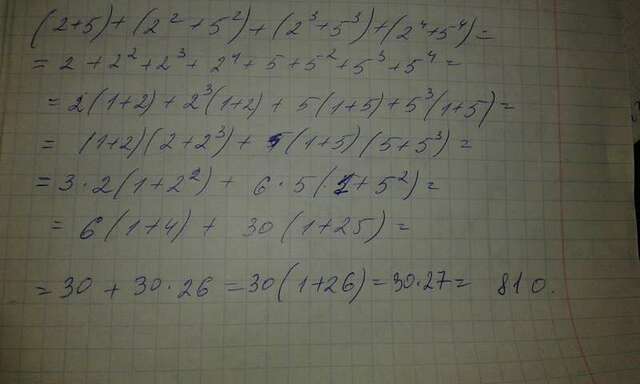 (2+5) + (2² + 5²) + (2³ + 5³) + (2⁴ + 5⁴) =
= 2 + 2² + 2³ + 2⁴ + 5 + 5² + 5³ + 5⁴ =
= 2(1+2) + 2³(1+2) + 5(1+5) + 5³(1+5) =
= (1+2)(2+2³) + (1+5)(5+5³) =
= 3·2(1+2²) + 6·5(1+5²) =
= 6(1+4) + 30(1+25) =
= 30 + 30·26 = 30(1+26) = 30·27 = 810.